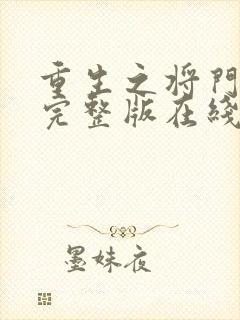 重生之将門
完整版在綫
墨妹夜